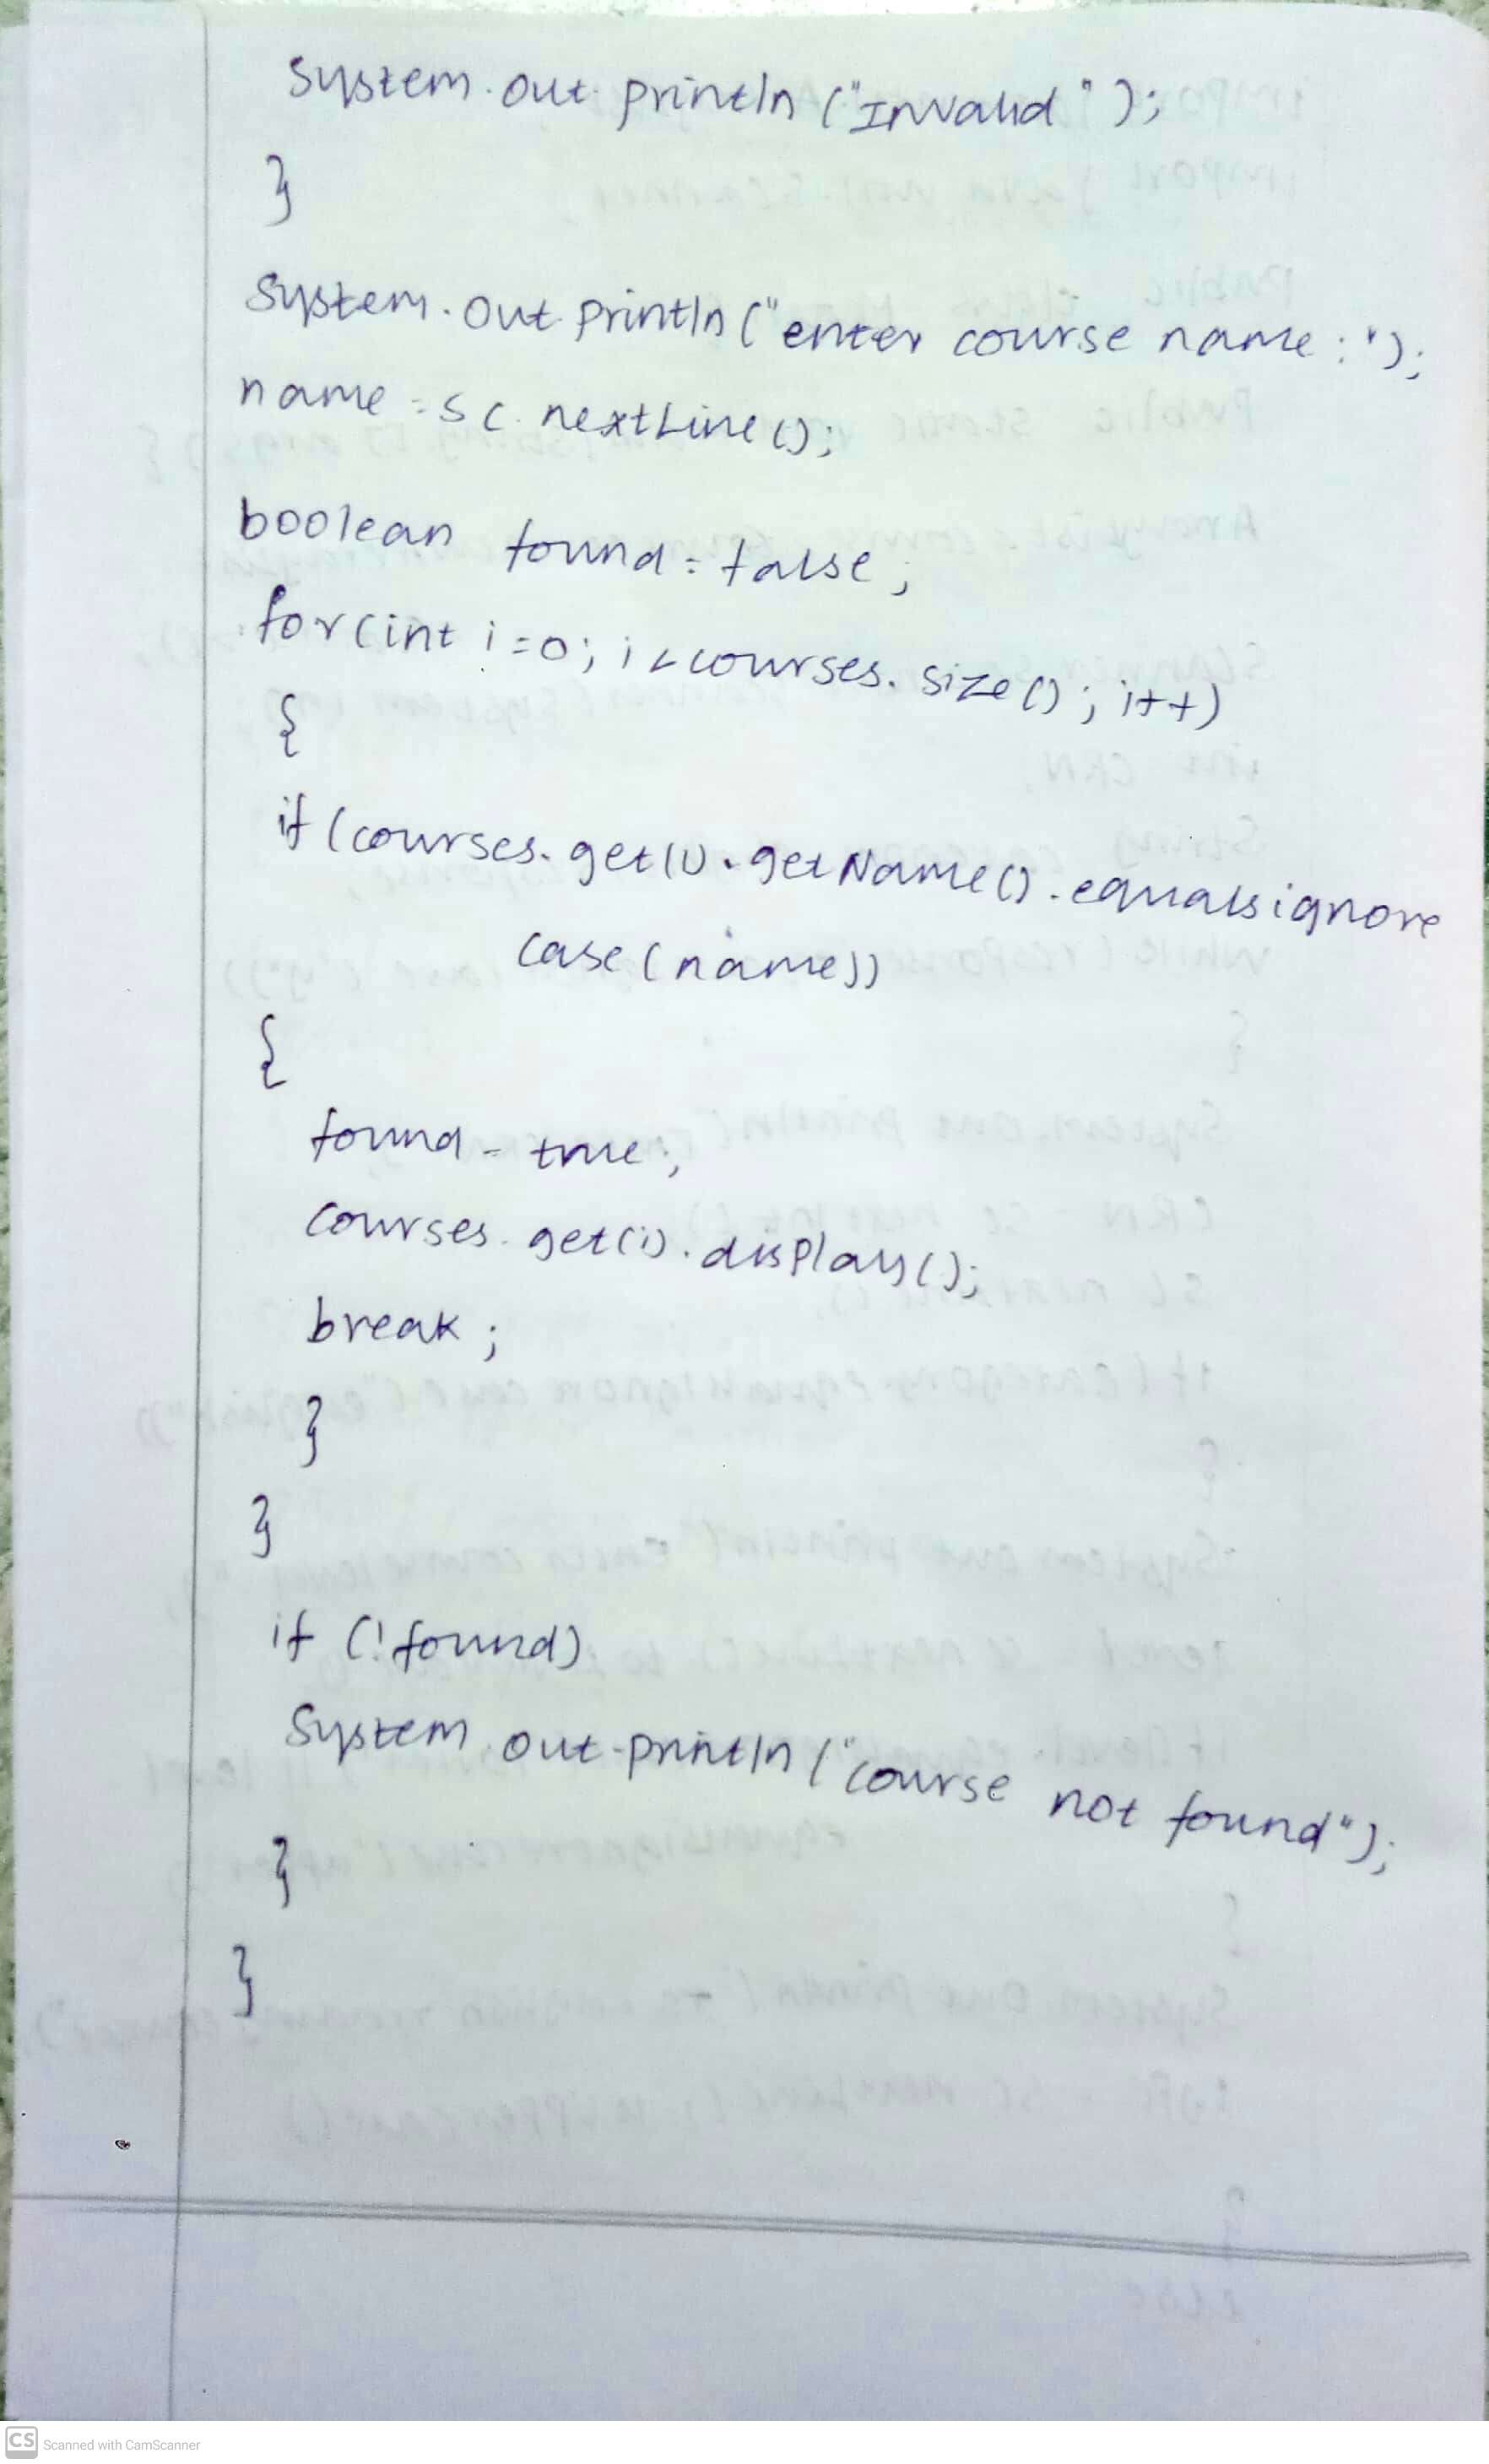 System.out.println("Invalid");
}
System.out.println("enter course name:");
name = sc.nextLine();
boolean found = false;
for(int i=0; i<courses.size(); i++)
{
if(courses.get(i).getName().equalsignore
case(name))
{
found = true;
courses.get(i).display();
break;
}
}
if (!found)
System.out.println("course not found");
}
}
CS Scanned with CamScanner